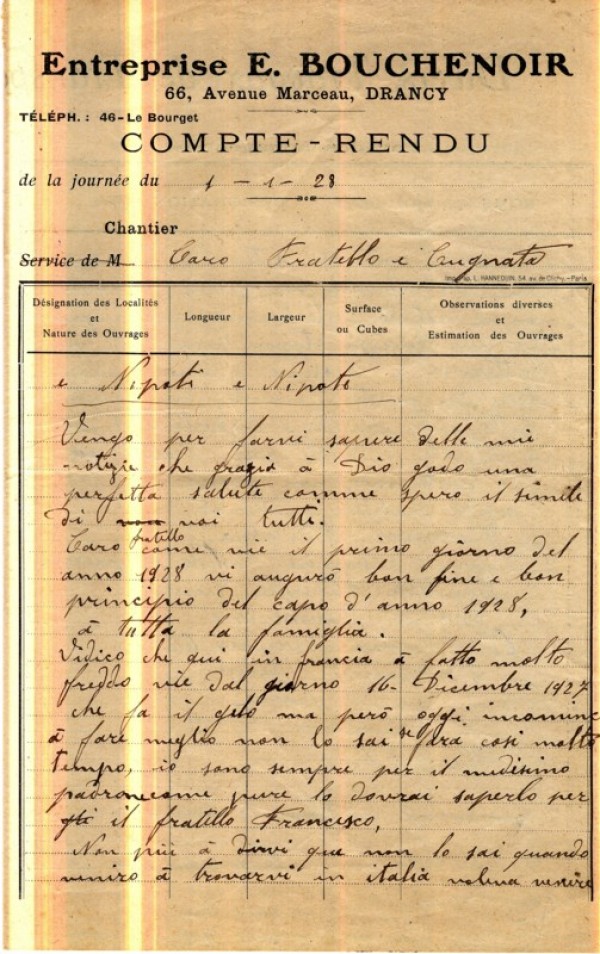 Entreprise E. BOUCHENOIR
66, Avenue Marceau, DRANCY
TÉLÉPH. : 46 - Le Bourget
COMPTE - RENDU
de la journée du 1 - 1 - 28
Chantier
Service de M Caro Fratello e Cugnata
Imp. L. HANNEQUIN, 54, av. de Clichy - Paris
Désignation des Localités et Nature des Ouvrages Longueur Largeur Surface ou Cubes Observations diverses et Estimation des Ouvrages
e Nipoti e Nipote
Vengo per farvi sapere delle mie
notizie che grazia à Dio godo una
perfetta salute comme spero il simile
di non voi tutti.
Caro fratello come vie il primo giorno del
anno 1928 vi augurò bon fine e bon
principio del capo d'anno 1928,
à tutta la famiglia.
Vidico che qui in francia à fatto molto
freddo vie dal giorno 16 - Dicembre 1927
che fa il gelo ma però oggi incominc
à fare meglio non lo sai se fara cosi molto
tempo, io sono sempre per il medisimo
padrone come pure lo dovrai saperlo per
gli il fratello Francisco,
Non più à dirvi que non lo sai quando
veniro à trovarvi in italia voleva venire